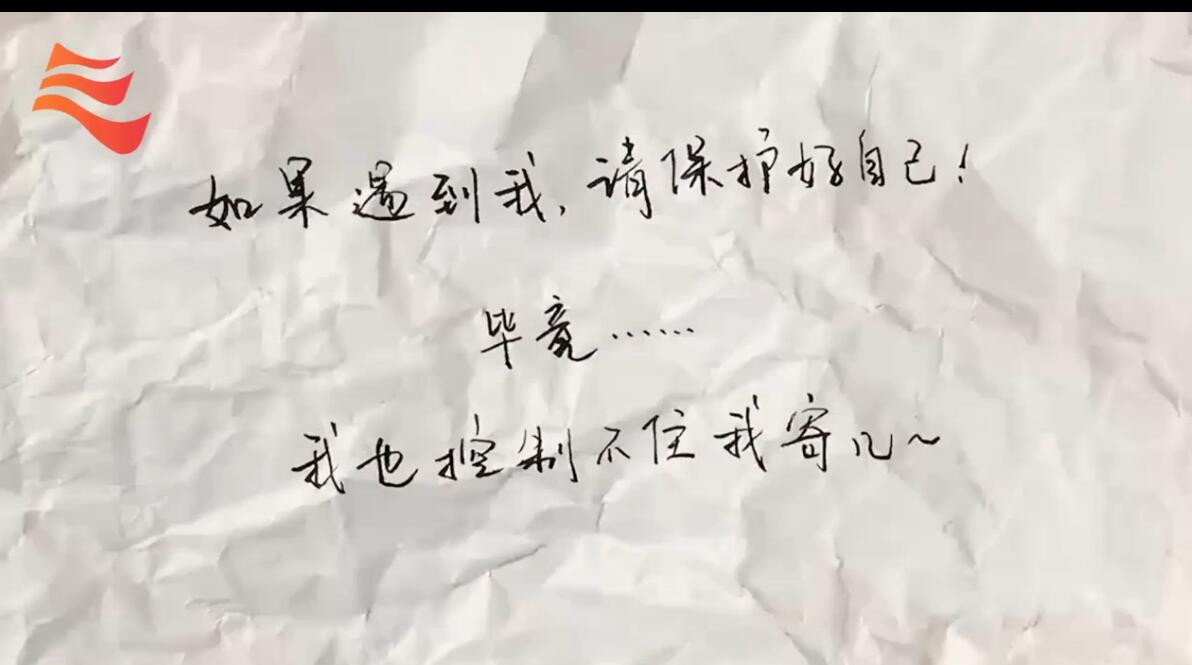 如果遇到我，请保护好自己！
毕竟……
我也控制不住我寄几~